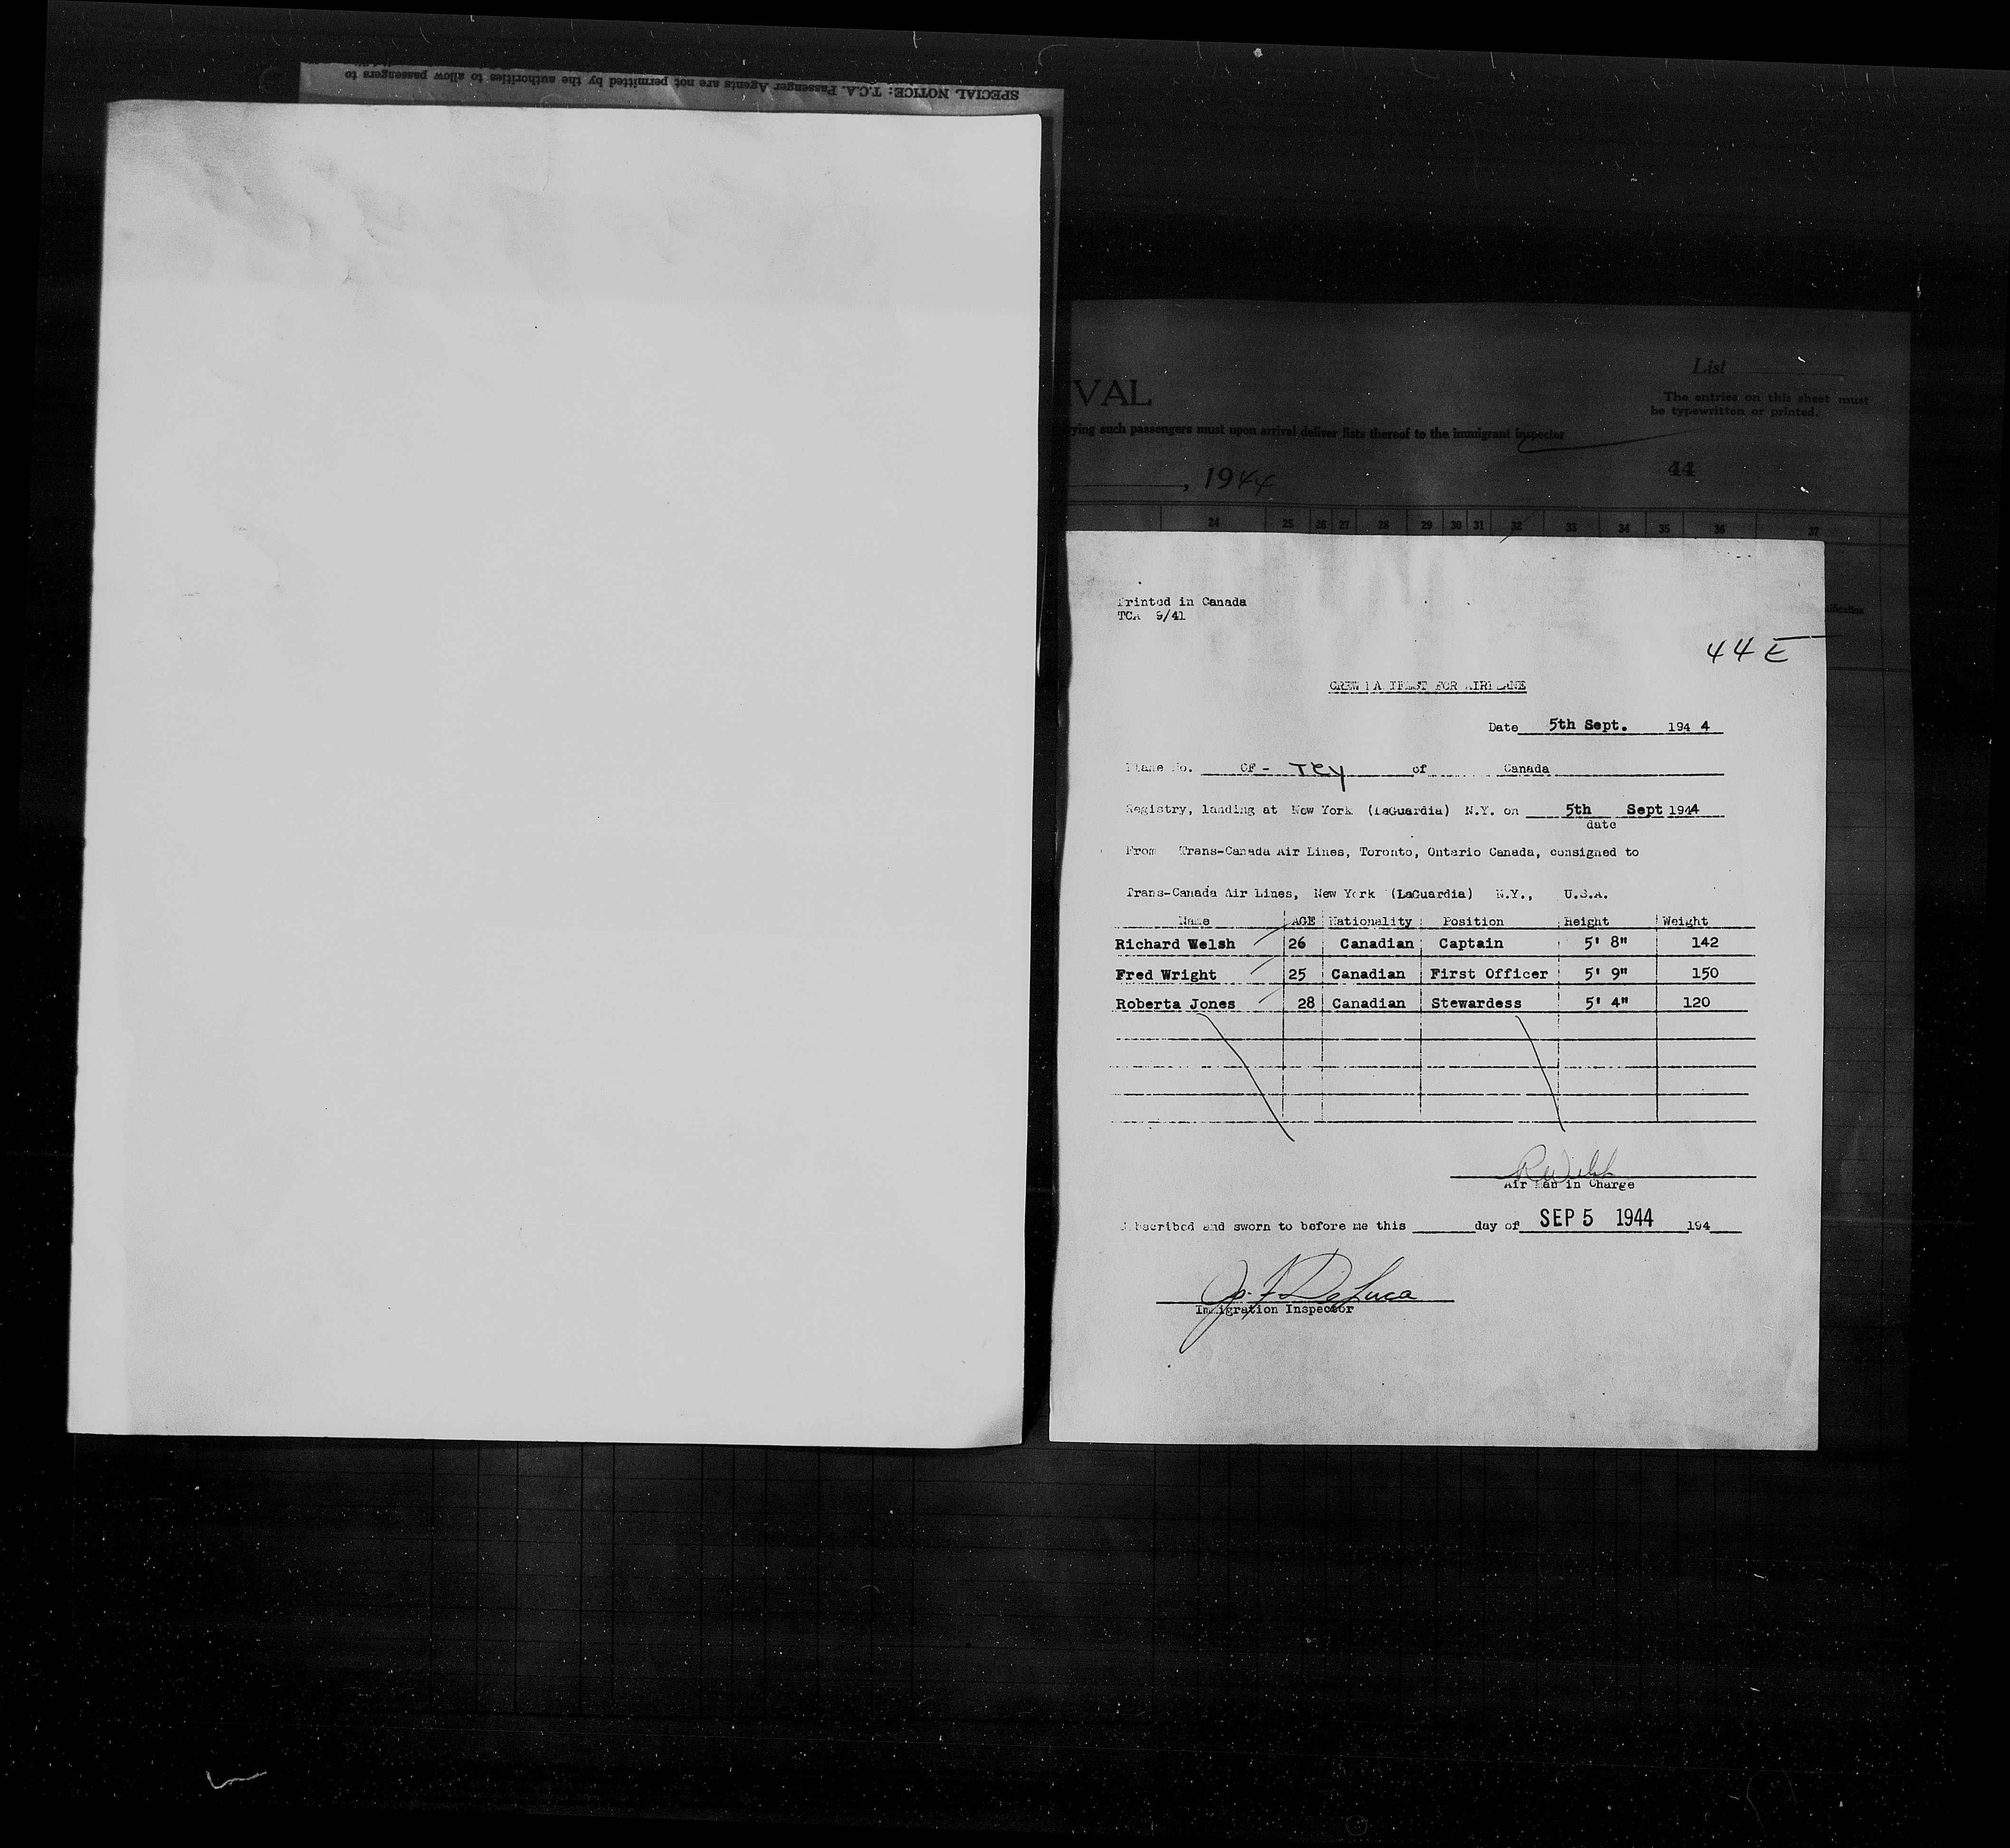 SPECIAL NOTICE: T.C.A. Passenger Agents are not permitted by the authorities to allow passengers to
VAL
List
The entries on this sheet must
be typewritten or printed.
ying such passengers must upon arrival deliver lists thereof to the immigrant inspector
, 1944
44
24 25 26 27 28 29 30 31 32 33 34 35 36 37
Printed in Canada
TCA 9/41
44 E
CREW MANIFEST FOR AIRPLANE
Date 5th Sept. 194 4
Plane No. CF - TCY of Canada
Registry, landing at New York (LaGuardia) N.Y. on 5th Sept 1944
date
From Trans-Canada Air Lines, Toronto, Ontario Canada, consigned to
Trans-Canada Air Lines, New York (LaGuardia) N.Y., U.S.A.
Name AGE Nationality Position Height Weight
Richard Welsh 26 Canadian Captain 5' 8" 142
Fred Wright 25 Canadian First Officer 5' 9" 150
Roberta Jones 28 Canadian Stewardess 5' 4" 120
Air Man in Charge
Subscribed and sworn to before me this day of SEP 5 1944 194
DeLuca
Immigration Inspector